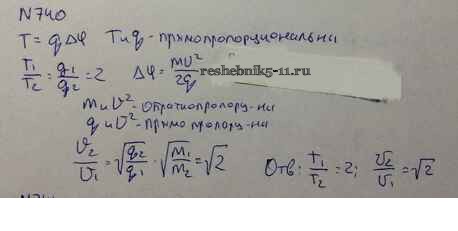 N740
T = qΔφ  T и q - прямопропорциональны
T₁/T₂ = q₁/q₂ = 2  Δφ = mυ²/2q
reshebnik5-11.ru
m и υ² - обратнопропорц-ны
q и υ² - прямо пропорц-ны
υ₂/υ₁ = √(q₂/q₁) · √(m₁/m₂) = √2  Отв: T₁/T₂ = 2; υ₂/υ₁ = √2